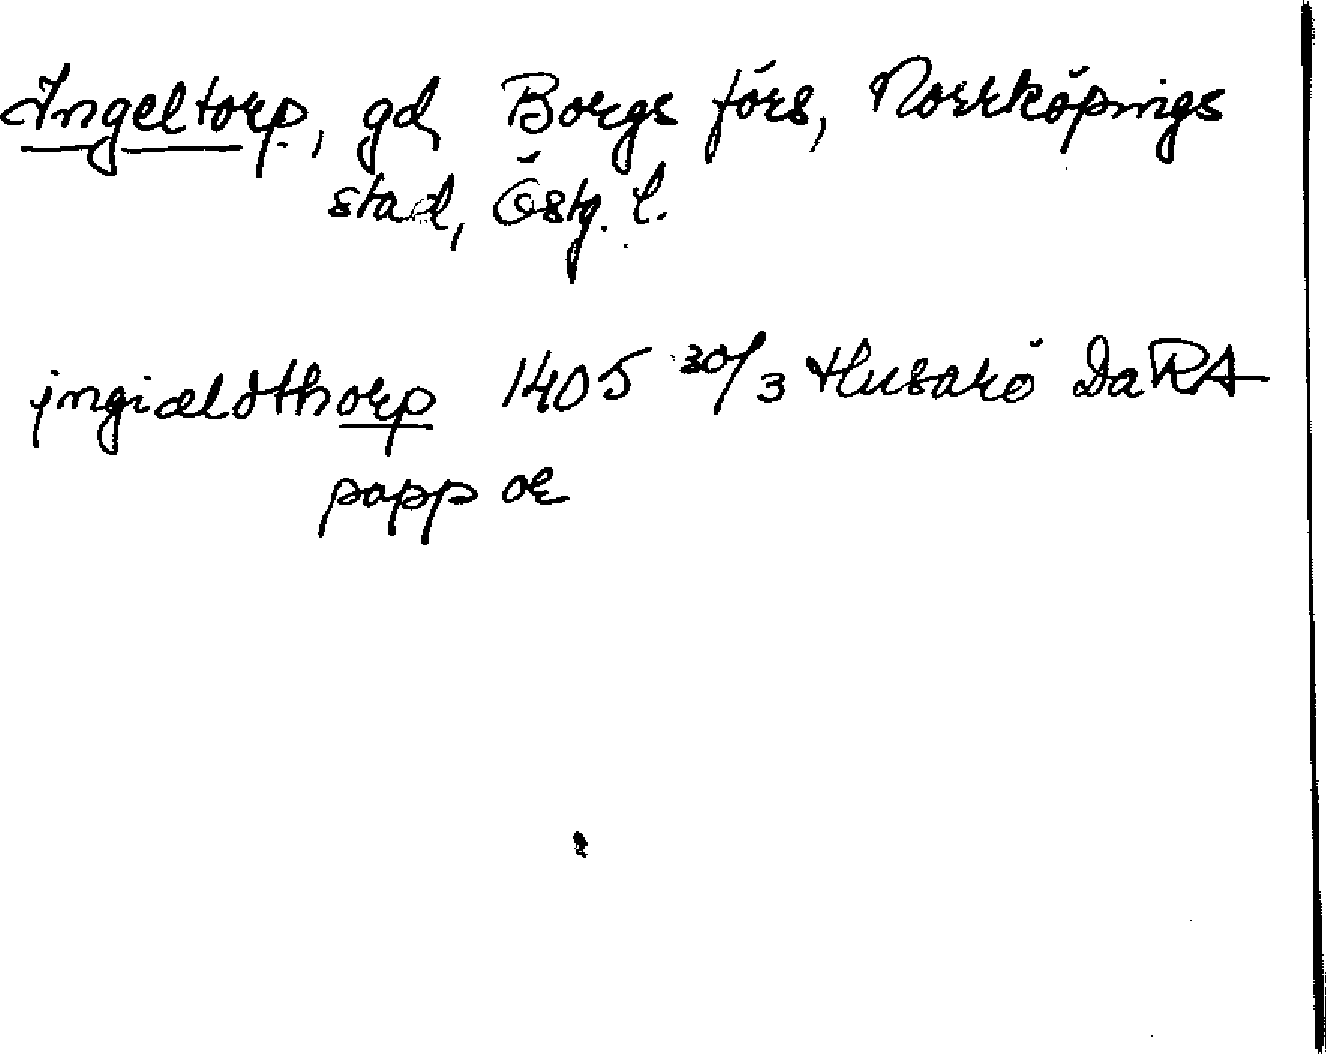 Ingeltorp, gd, Borgs förs, Norrköpings
stad, Östg. l.
jngiældthorp 1405 30/3 Husarö DaRA
papp or